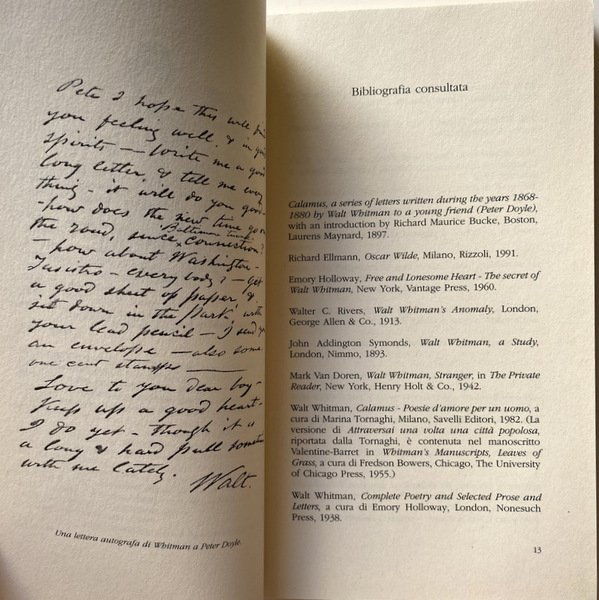 Pete I hope this will find
you feeling well, & in good
spirits — Write me a good
long letter, & tell me every
thing - it will do you good
- how does the new time go on
the road, since Baltimore tunnel connection?
- how about Washington -
Tasistro - everybody? - get
a good sheet of paper, &
set down in the Park with
your lead pencil — I send you
an envelope — also some
one cent stamps —
Love to you dear boy -
Keep up a good heart -
I do yet - though it is
a long & hard pull sometimes
with me lately.
Walt.
Una lettera autografa di Whitman a Peter Doyle.
Bibliografia consultata
Calamus, a series of letters written during the years 1868-
1880 by Walt Whitman to a young friend (Peter Doyle),
with an introduction by Richard Maurice Bucke, Boston,
Laurens Maynard, 1897.
Richard Ellmann, Oscar Wilde, Milano, Rizzoli, 1991.
Emory Holloway, Free and Lonesome Heart - The secret of
Walt Whitman, New York, Vantage Press, 1960.
Walter C. Rivers, Walt Whitman's Anomaly, London,
George Allen & Co., 1913.
John Addington Symonds, Walt Whitman, a Study,
London, Nimmo, 1893.
Mark Van Doren, Walt Whitman, Stranger, in The Private
Reader, New York, Henry Holt & Co., 1942.
Walt Whitman, Calamus - Poesie d'amore per un uomo, a
cura di Marina Tornaghi, Milano, Savelli Editori, 1982. (La
versione di Attraversai una volta una città popolosa,
riportata dalla Tornaghi, è contenuta nel manoscritto
Valentine-Barret in Whitman's Manuscripts, Leaves of
Grass, a cura di Fredson Bowers, Chicago, The University
of Chicago Press, 1955.)
Walt Whitman, Complete Poetry and Selected Prose and
Letters, a cura di Emory Holloway, London, Nonesuch
Press, 1938.
13